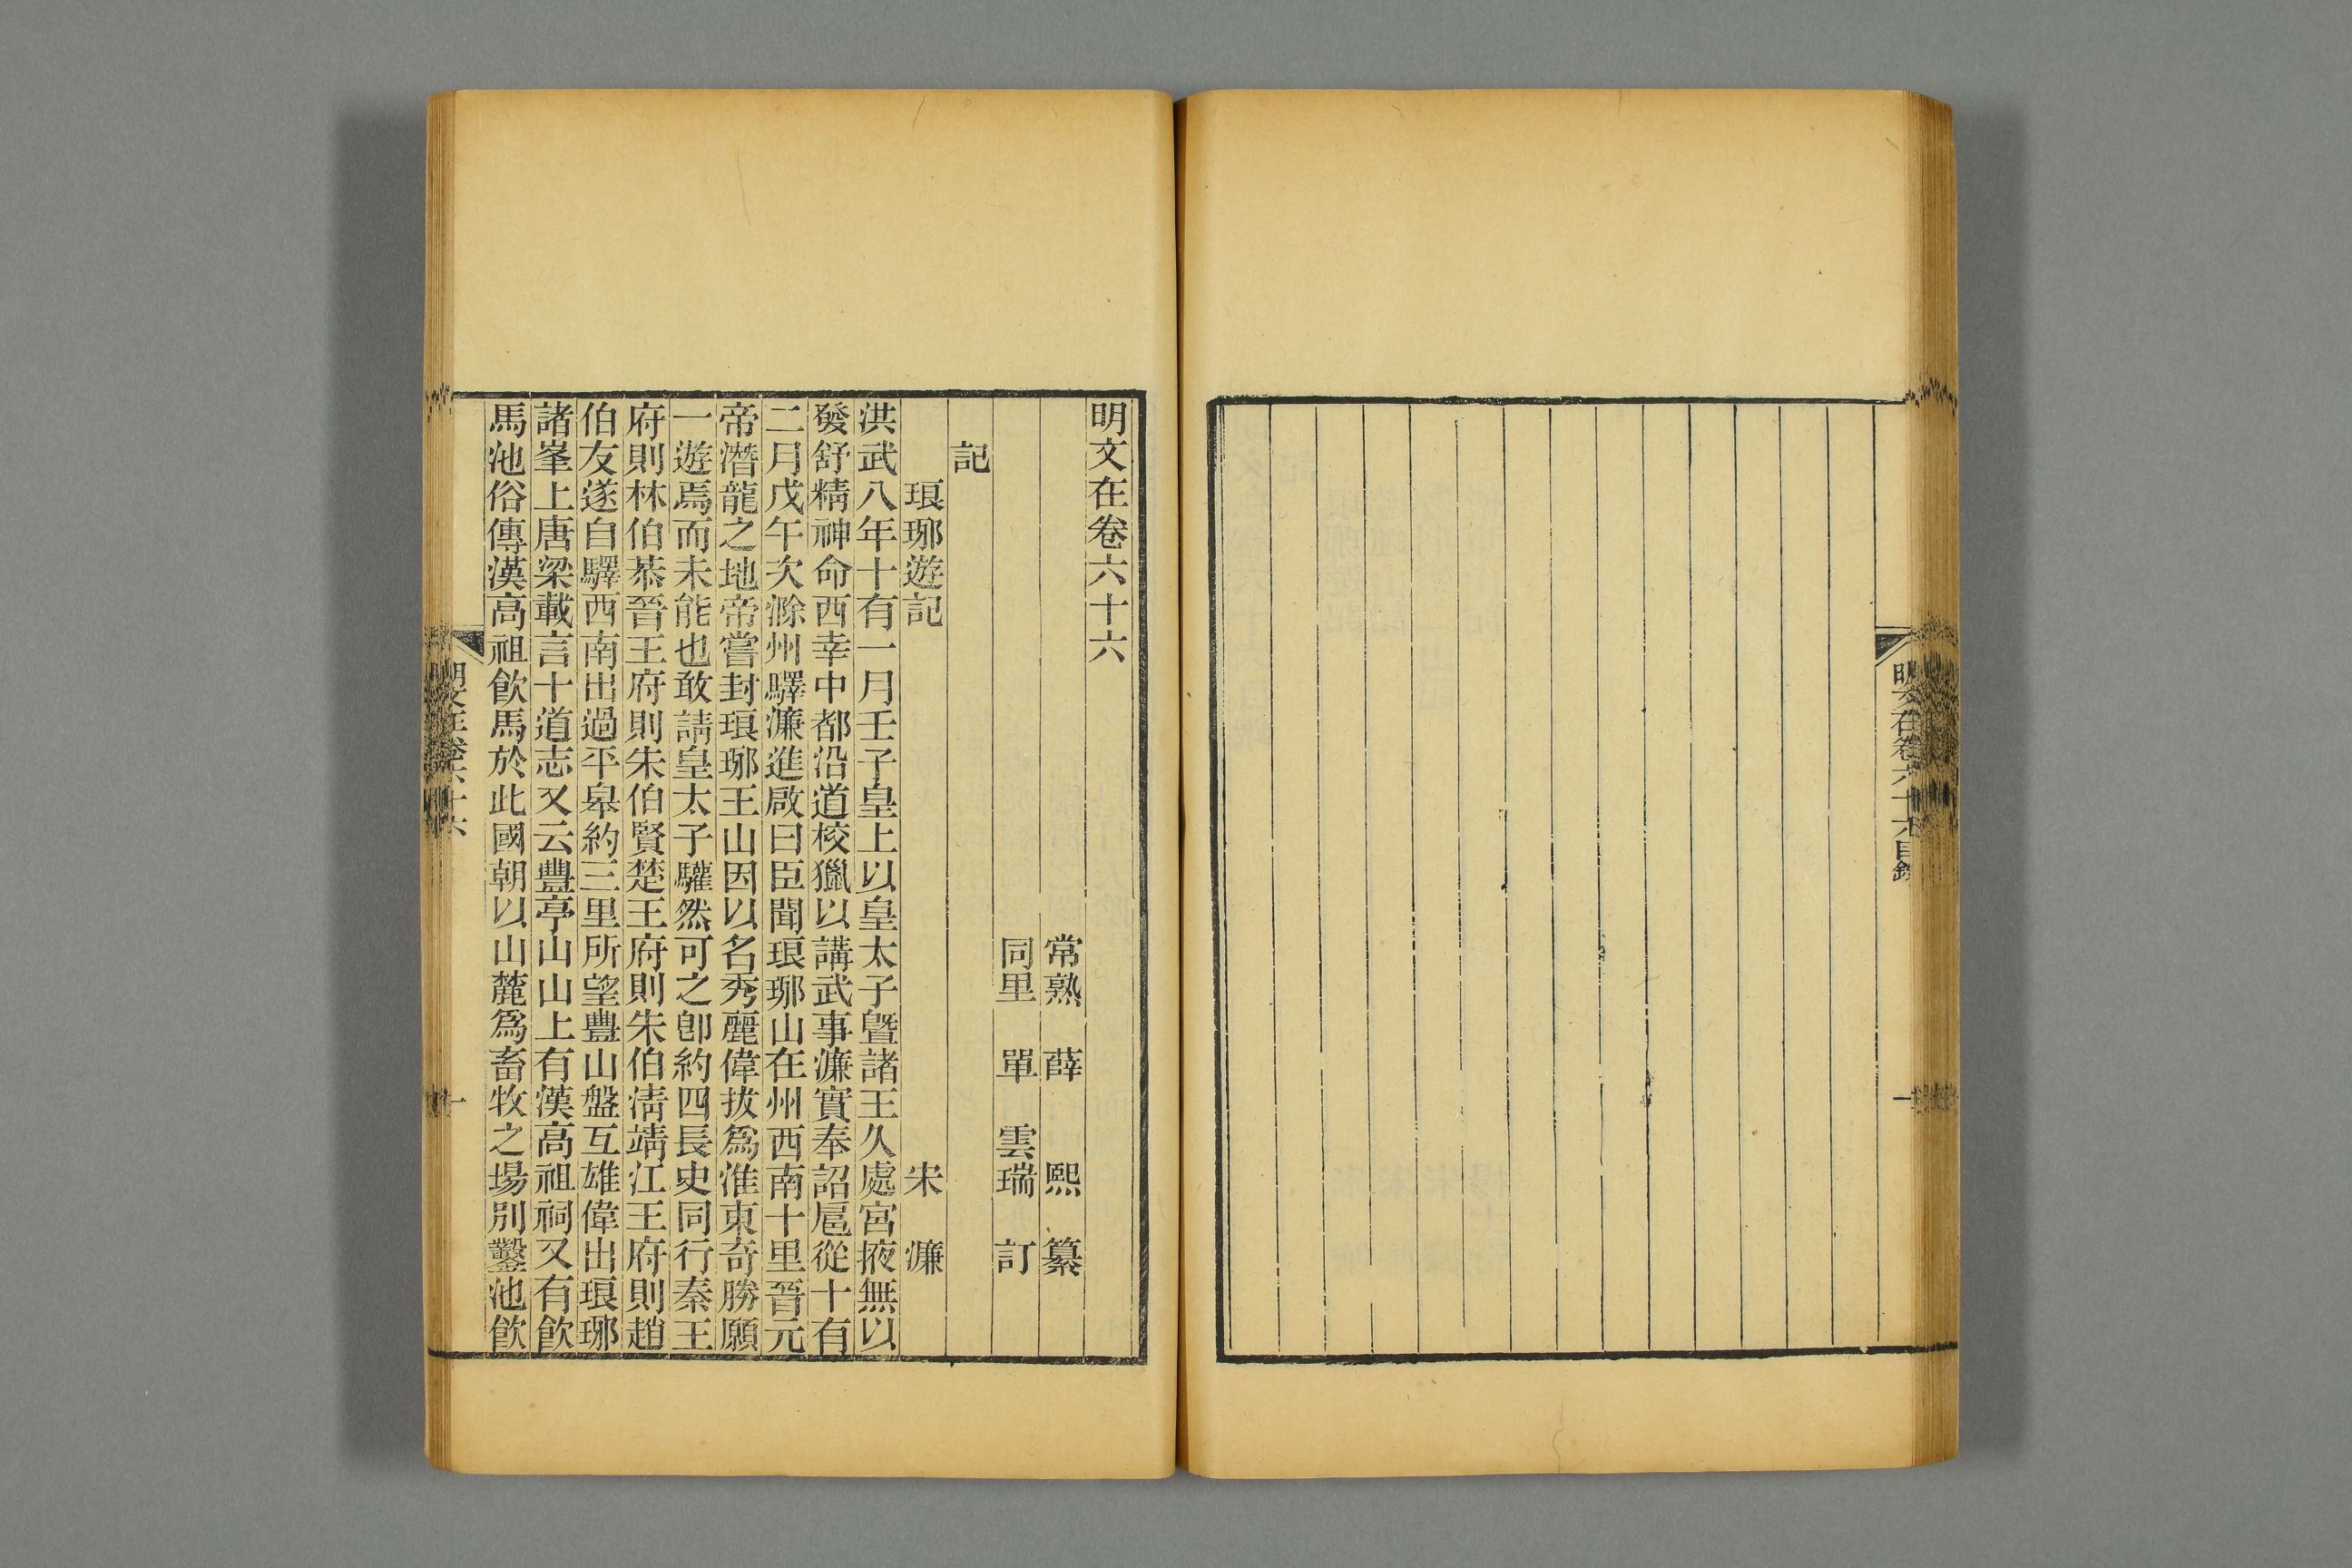 明文在卷六十六目錄
一
明文在卷六十六
常熟 薛 熙 纂
同里 單 雲瑞 訂
記
琅琊遊記 宋 濂
洪武八年十有一月壬子皇上以皇太子曁諸王久處宮掖無以
發舒精神命西幸中都沿道校獵以講武事濂實奉詔扈從十有
二月戊午次滁州驛濂進啟曰臣聞琅琊山在州西南十里晉元
帝潛龍之地帝嘗封琅琊王山因以名秀麗偉拔爲淮東奇勝願
一遊焉而未能也敢請皇太子驩然可之卽約四長史同行秦王
府則林伯恭晉王府則朱伯賢楚王府則朱伯淸靖江王府則趙
伯友遂自驛西南出過平皋約三里所望豐山盤互雄偉出琅琊
諸峯上唐梁載言十道志又云豐亭山山上有漢高祖祠又有飮
馬池俗傳漢高祖飮馬於此國朝以山麓爲畜牧之場別鑿池飮
明文在卷六十六
一